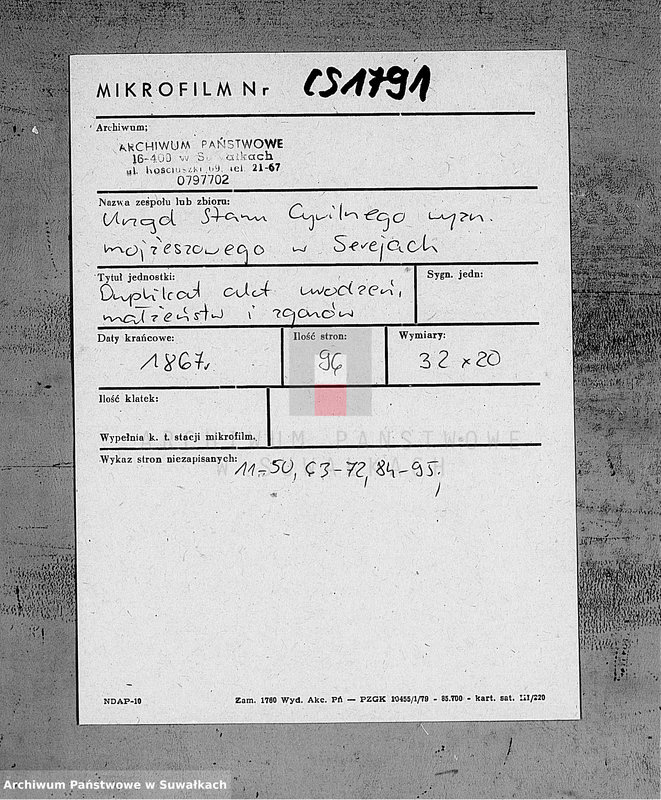 MIKROFILM Nr CS1791
Archiwum;
ARCHIWUM PAŃSTWOWE
16-400 w Suwałkach
ul. Kościuszki 69, tel. 21-67
0797702
Nazwa zespołu lub zbioru:
Urząd Stanu Cywilnego wyzn.
mojżeszowego w Serejach
Tytuł jednostki:
Sygn. jedn:
Duplikat akt urodzeń,
małżeństw i zgonów
Daty krańcowe:
Ilość stron:
Wymiary:
1867r.
96
32 x 20
Ilość klatek:
Wypełnia k. t. stacji mikrofilm.
ARCHIWUM PAŃSTWOWE
W SUWAŁKACH
Wykaz stron niezapisanych: 11-50, 63-72, 84-95,
NDAP-10
Zam. 1760 Wyd. Akc. Pń — PZGK 10455/1/79 - 85.700 - kart. sat. III/220
Archiwum Państwowe w Suwałkach